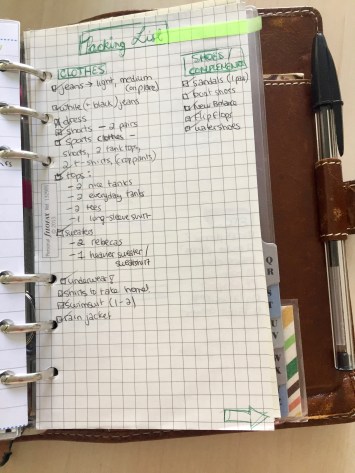 Packing List
CLOTHES
jeans → light, medium
(on plane)
white (+ black) jeans
dress
shorts - 2 pairs
sports clothes -
shorts, 2 tank tops,
2 t-shirts, (crop pants)
tops:
- 2 nice tanks
- 2 everyday tanks
- 2 tees
- 1 long-sleeve shirt
sweaters
- 2 rebecas
- 1 heavier sweater/
sweatshirt
underwear!
shirts to take home!
swimsuit (1-2)
rain jacket
SHOES/
sandals (1 pair)
boat shoes
New Balance
flip flops
watershoes
Q
R